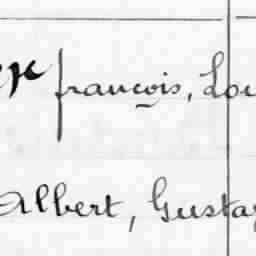 françois, Lou
Albert, Gusta